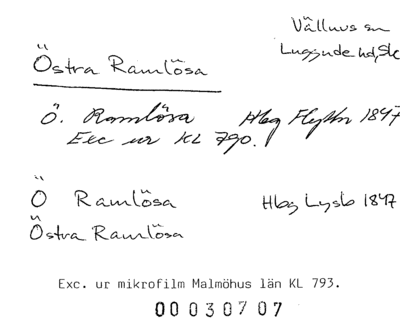 Välluvs sn
Luggude hd, Sk
Östra Ramlösa
Ö. Ramlösa Hbg 1847
Exc ur KL 790.
Ö Ramlösa Hbg 1847
Östra Ramlösa
Exc. ur mikrofilm Malmöhus län KL 793.
00030707